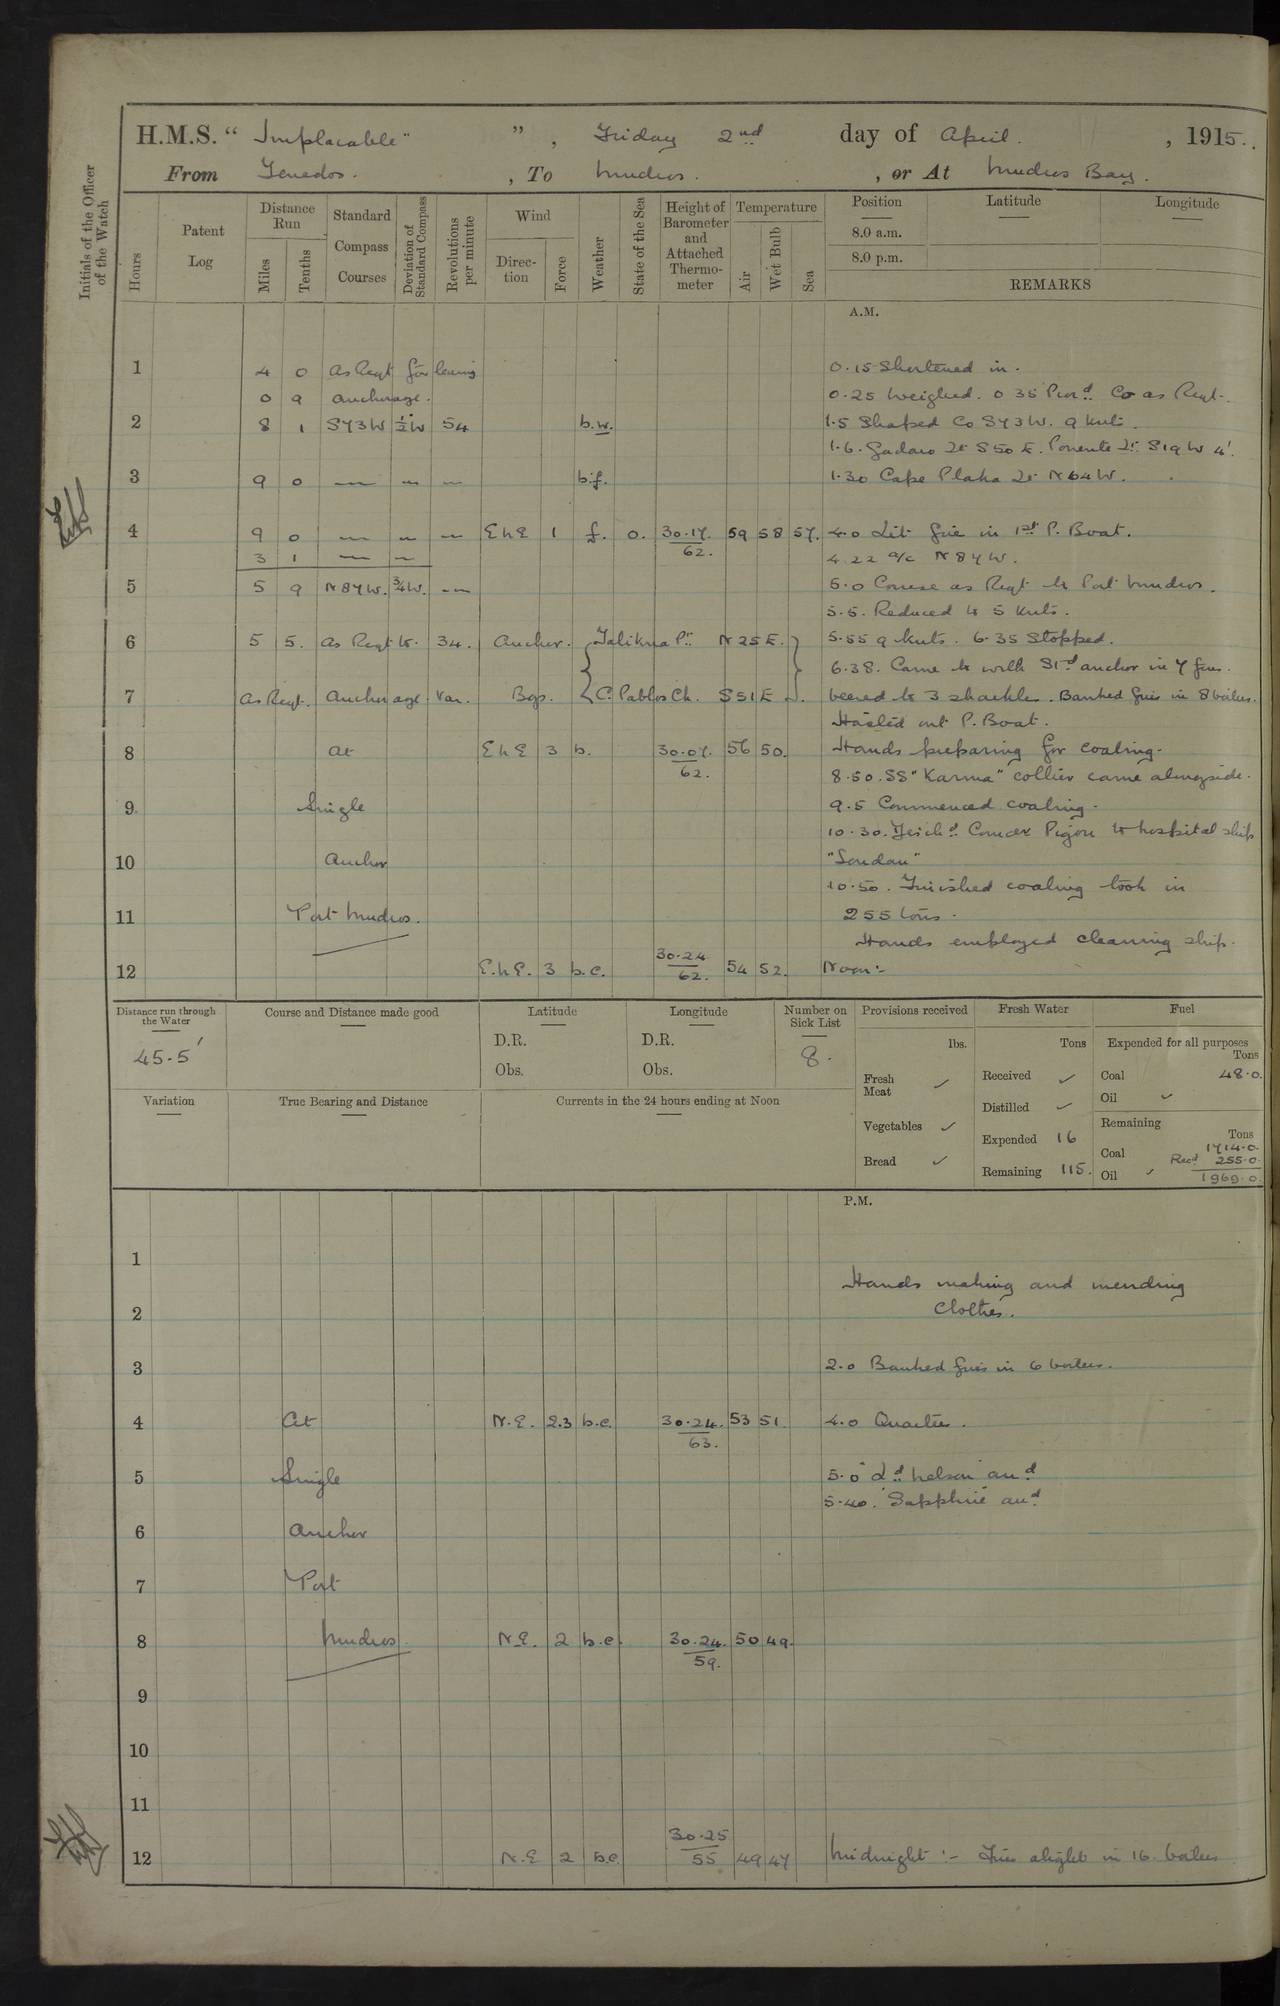 H.M.S. "Implacable", Friday 2nd day of April, 1915.
From Tenedos, To Mudros, or At Mudros Bay.
Initials of the Officer of the Watch
Hours
Patent Log
Distance Run
Miles
Tenths
Standard Compass Courses
Deviation of Standard Compass
Revolutions per minute
Wind
Direction
Force
Weather
State of the Sea
Height of Barometer and Attached Thermometer
Temperature
Air
Wet Bulb
Sea
Position
Latitude
Longitude
8.0 a.m.
8.0 p.m.
REMARKS
A.M.
1 4 0 As Reqt for leaving 0.15 Shortened in.
0 9 anchorage. 0.25 Weighed. 0 35 Procd. Co as Reqt.
2 8 1 S43W ½W 54 b.w. 1.5 Shaped Co S43W. 9 knts.
1.6. Gadaro Lt S50E. Ponente Lt S19W 4'.
3 9 0 — — — b.f. 1.30 Cape Plaka Lt N64W.
4 9 0 — — — E h E 1 f. 0. 30.17. 59 58 57. 4.0 Lit fire in 1st P. Boat.
62.
3 1 — — 4.22 a/c N84W.
5 5 9 N84W. ¾W. — 5.0 Course as Reqt to Port Mudros.
5.5. Reduced to 5 knts.
6 5 5. as Reqt to. 34. Anchor. Talikna Pt N25E. 5.55 9 knts. 6.35 Stopped.
6.38. Came to with Std anchor in 7 fms.
7 As Reqt. Anchorage. Var. Bgs. C. Pablos Ch. S51E Veered to 3 shackles. Banked fires in 8 boilers.
Hoisted out P. Boat.
8 At E h E 3 b. 30.07. 56 50. Hands preparing for coaling.
62.
8.50. SS "Karma" collier came alongside.
9 Single 9.5 Commenced coaling.
10.30. Pigou to hospital ship
10 Anchor "Soudan"
10.50. Finished coaling took in
11 Port Mudros. 255 tons.
Hands employed cleaning ship.
12 E.h.E. 3 b.c. 30.24 54 52. Noon:-
62.
Distance run through the Water
45.5'
Course and Distance made good
Latitude
D.R.
Obs.
Longitude
D.R.
Obs.
Number on Sick List
8.
Provisions received
lbs.
Fresh Meat ✓
Vegetables ✓
Bread ✓
Fresh Water
Tons
Received ✓
Distilled ✓
Expended 16
Remaining 115.
Fuel
Expended for all purposes
Tons
Coal 48.0.
Oil ✓
Remaining
Tons
Coal 1714.0.
Recd 255.0.
Oil ✓ 1969.0.
Variation
True Bearing and Distance
Currents in the 24 hours ending at Noon
P.M.
1
Hands making and mending
2 Clothes.
3 2.0 Banked fires in 6 boilers.
4 At N.E. 2.3 b.c. 30.24. 53 51. 4.0 Quarters.
63.
5 Single 5.0 "Ld Nelson" arrd
5.40. "Sapphire" arrd
6 Anchor
7 Port
8 Mudros N.E. 2 b.c. 30.24. 50 49.
59.
9
10
11
12 N.E 2 b.c. 30.25 49 47 Midnight:- Fires alight in 16 boilers
55